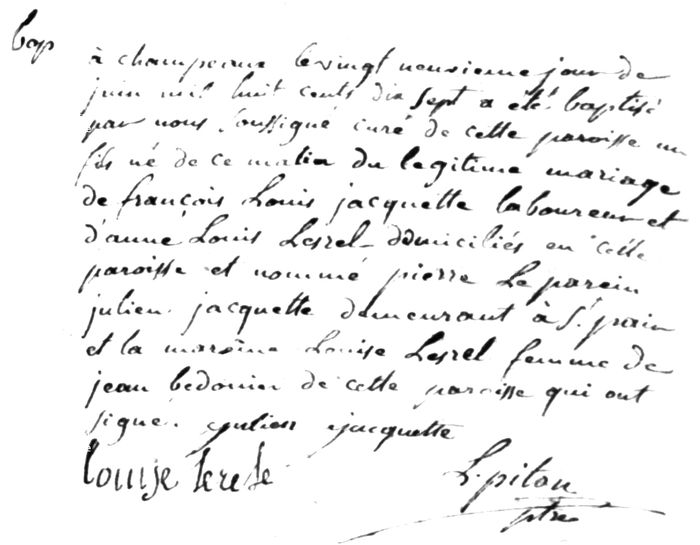 bap
à champeaux le vingt neuvieme jour de
juin mil huit cents dix sept a eté baptisé
par nous soussigné curé de cette paroisse un
fils né de ce matin du legitime mariage
de françois Louis jacquette laboureur et
d'anne Louis Lesrel domiciliés en cette
paroisse et nommé pierre Le parein
julien jacquette demeurant à St pain
et la maraine Louise Lesrel femme de
jean bedouin de cette paroisse qui ont
signé. julien jacquette
Louise lerele
L. piton
ptre